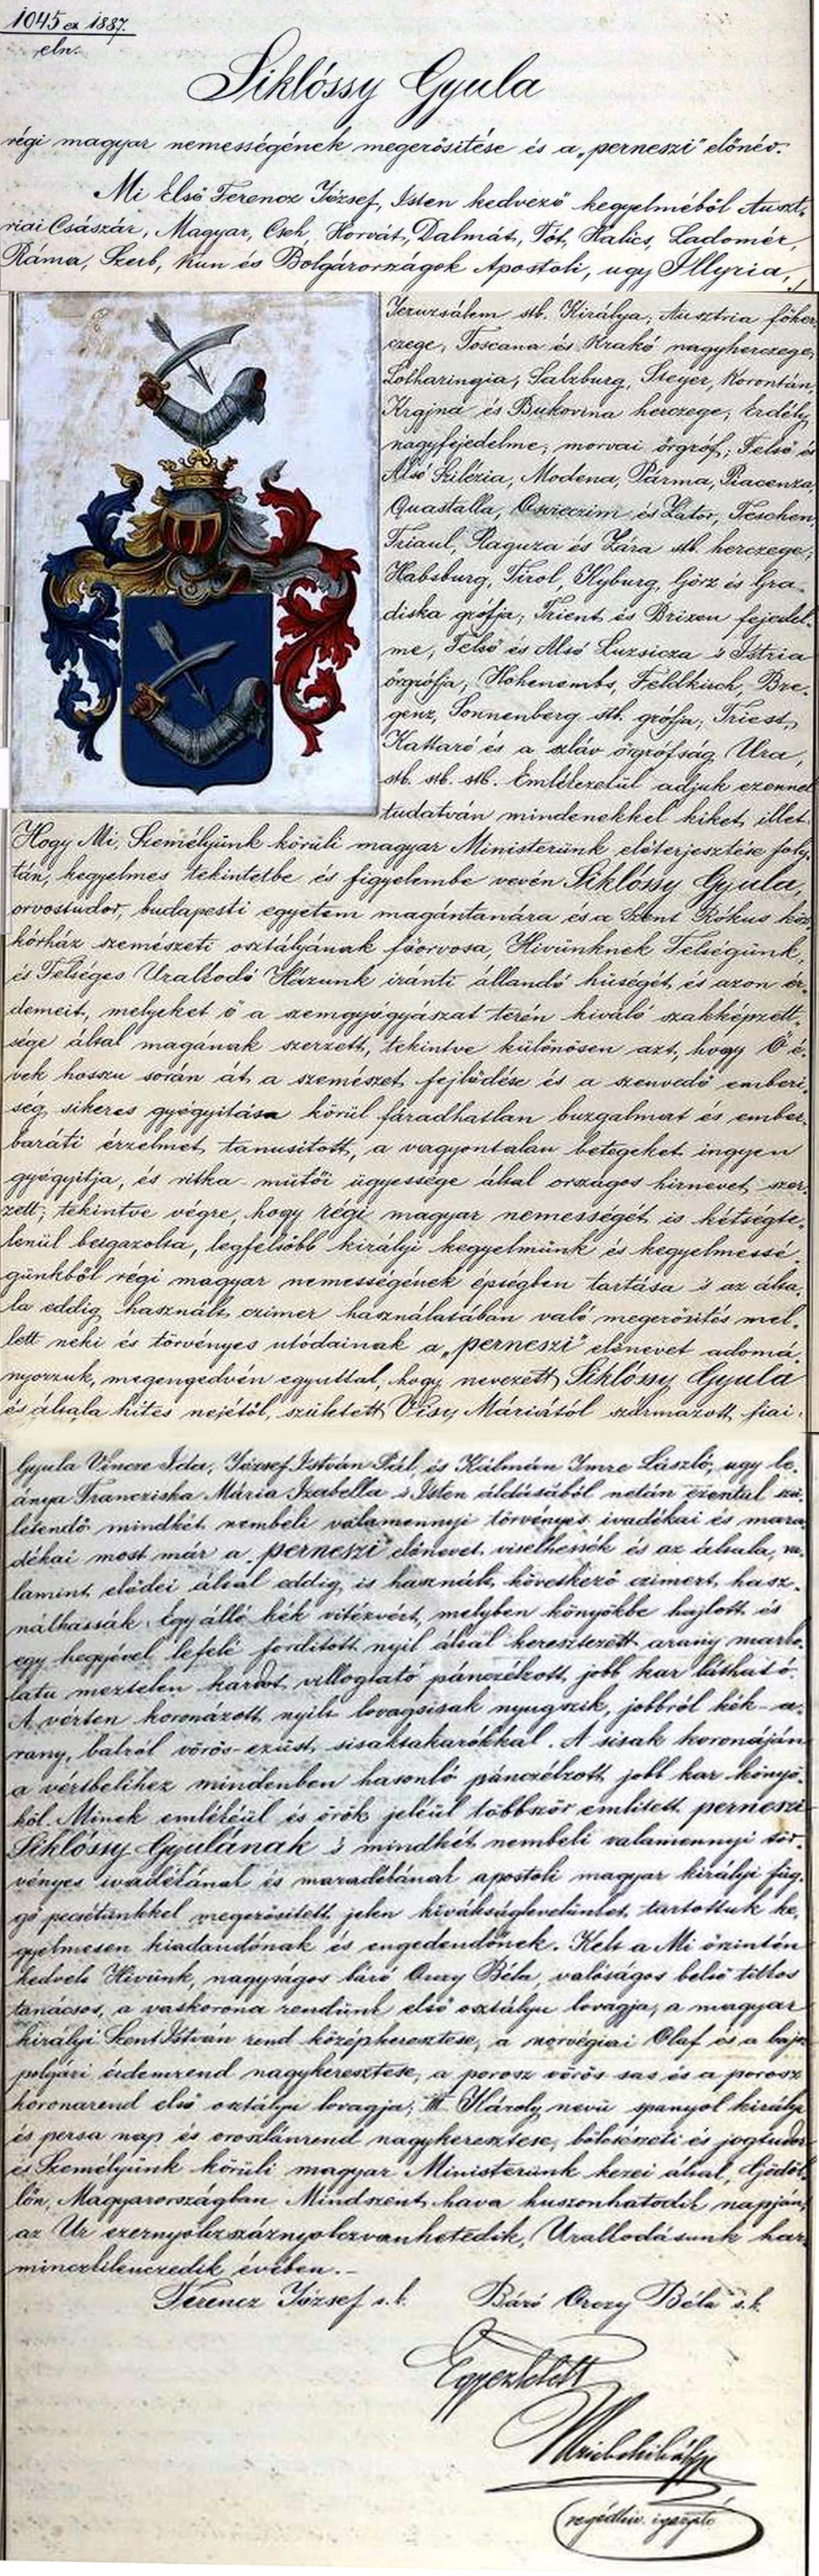 1045 ex 1887.
eln.
Siklóssy Gyula
régi magyar nemességének megerősítése és a „perneszi" előnév.
Mi Első Ferencz József, Isten kedvező kegyelméből Auszt-
riai Császár, Magyar, Cseh, Horvát, Dalmát, Tót, Halics, Ladomér,
Ráma, Szerb, Kun és Bolgárországok Apostoli, ugy Illyria,
Jeruzsálem stb. Királya; Ausztria főher-
czege; Toscana és Krakó nagyherczege;
Lotharingia, Salzburg, Steyer, Korontán,
Krajna és Bukovina herczege; Erdély
nagyfejedelme; morvai őrgróf; Felső és
Alsó Szilézia, Modena, Párma, Piacenza,
Quastalla, Osvieczim és Zator, Teschen,
Friaul, Raguza és Zára stb. herczege;
Habsburg, Tirol, Kyburg, Görz és Gra-
diska grófja; Trient és Brixen fejedel-
me; Felső és Alsó Luzsicza s Istria
őrgrófja; Hohenembs, Feldkirch, Bre-
genz, Sonnenberg stb. grófja; Triest,
Kattaró és a szláv őrgrófság Ura,
stb. stb. stb. Emlékezetül adjuk ezennel
tudatván mindenekkel kiket illet.
Hogy Mi, Személyünk körüli magyar Ministerünk előterjesztése foly-
tán, kegyelmes tekintetbe és figyelembe vevén Siklóssy Gyula,
orvostudor, budapesti egyetem magántanára és a Szent Rókus köz-
kórház szemészeti osztályának főorvosa, Hivünknek Felségünk,
és Felséges Uralkodó Házunk iránti állandó hüségét, és azon ér-
demeit, melyeket ő a szemgyógyászat terén kiváló szakképzett-
sége által magának szerzett, tekintve különösen azt, hogy Ő é-
vek hosszu során át a szemészet fejlődése és a szenvedő emberi-
ség sikeres gyógyitása körül fáradhatlan buzgalmat és ember-
baráti érzelmet tanusitott, a vagyontalan betegeket ingyen
gyógyitja, és ritka mütői ügyessége által országos hirnevet szer-
zett; tekintve végre, hogy régi magyar nemességét is kétségte-
lenül beigazolta, legfelsőbb királyi kegyelmünk és kegyelmessé-
günkből régi magyar nemességének épségben tartása s az álta-
la eddig használt czimer használatában való megerősités mel-
lett neki és törvényes utódainak a „perneszi" előnevet adomá-
nyozzuk, megengedvén egyuttal, hogy nevezett Siklóssy Gyula
és általa hites nejétől, született Visy Máriától származott fiai:
Gyula Vincze Ida, József István Pál, és Kálmán Imre László, ugy le-
ánya Francziska Mária Izabella s Isten áldásából netán ezentul szü-
letendő mindkét nembeli valamennyi törvényes ivadékai és mara-
dékai most már a „perneszi" előnevet viselhessék és az általa, va-
lamint elődei által eddig is használt, következő czimert hasz-
nálhassák: Egy álló kék vitézvért, melyben könyökbe hajlott és
egy hegyével lefelé forditott nyil által keresztezett arany marko-
latu meztelen kardot villogtató pánczélzott jobb kar látható.
A vérten koronázott nyilt lovagsisak nyugszik, jobbról kék-a-
rany, balról vörös-ezüst sisaktakarókkal. A sisak koronáján
a vértbelihez mindenben hasonló pánczélzott jobb kar könyö-
köl. Minek emlékéül és örök jeléül többször emlitett perneszi
Siklóssy Gyulának s mindkét nembeli valamennyi tör-
vényes ivadékának és maradékának apostoli magyar királyi füg-
gő pecsétünkkel megerősitett jelen kiváltságlevelünket tartottuk ke-
gyelmesen kiadandónak és engedendőnek. Kelt a Mi őszintén
kedvelt Hivünk, nagyságos báró Orczy Béla, valóságos belső titkos
tanácsos, a vaskorona rendünk első osztályu lovagja, a magyar
királyi Szent István rend középkeresztese, a norvégiai Olaf és a bajor
polgári érdemrend nagykeresztese, a porosz vörös sas és a porosz
koronarend első osztályu lovagja, III. Károly nevü spanyol királyi
és persa nap és oroszlánrend nagykeresztese, bölcsészeti és jogtudor
és Személyünk körüli magyar Ministerünk kezei által, Gödöl-
lőn, Magyarországban Mindszent hava huszonhatodik napján,
az Ur ezernyolczszáznyolczvanhetedik, Uralkodásunk har-
minczkilenczedik évében.-
Ferencz József s. k. Báró Orczy Béla s. k.
Egyeztetett
segédhiv. igazgató